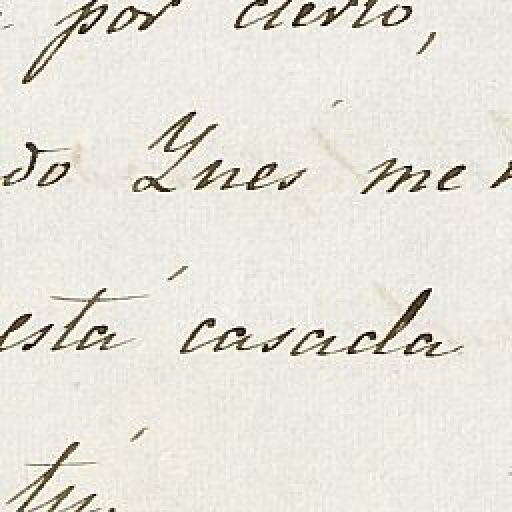 por cierto,
do Ynés me
está casada
tú